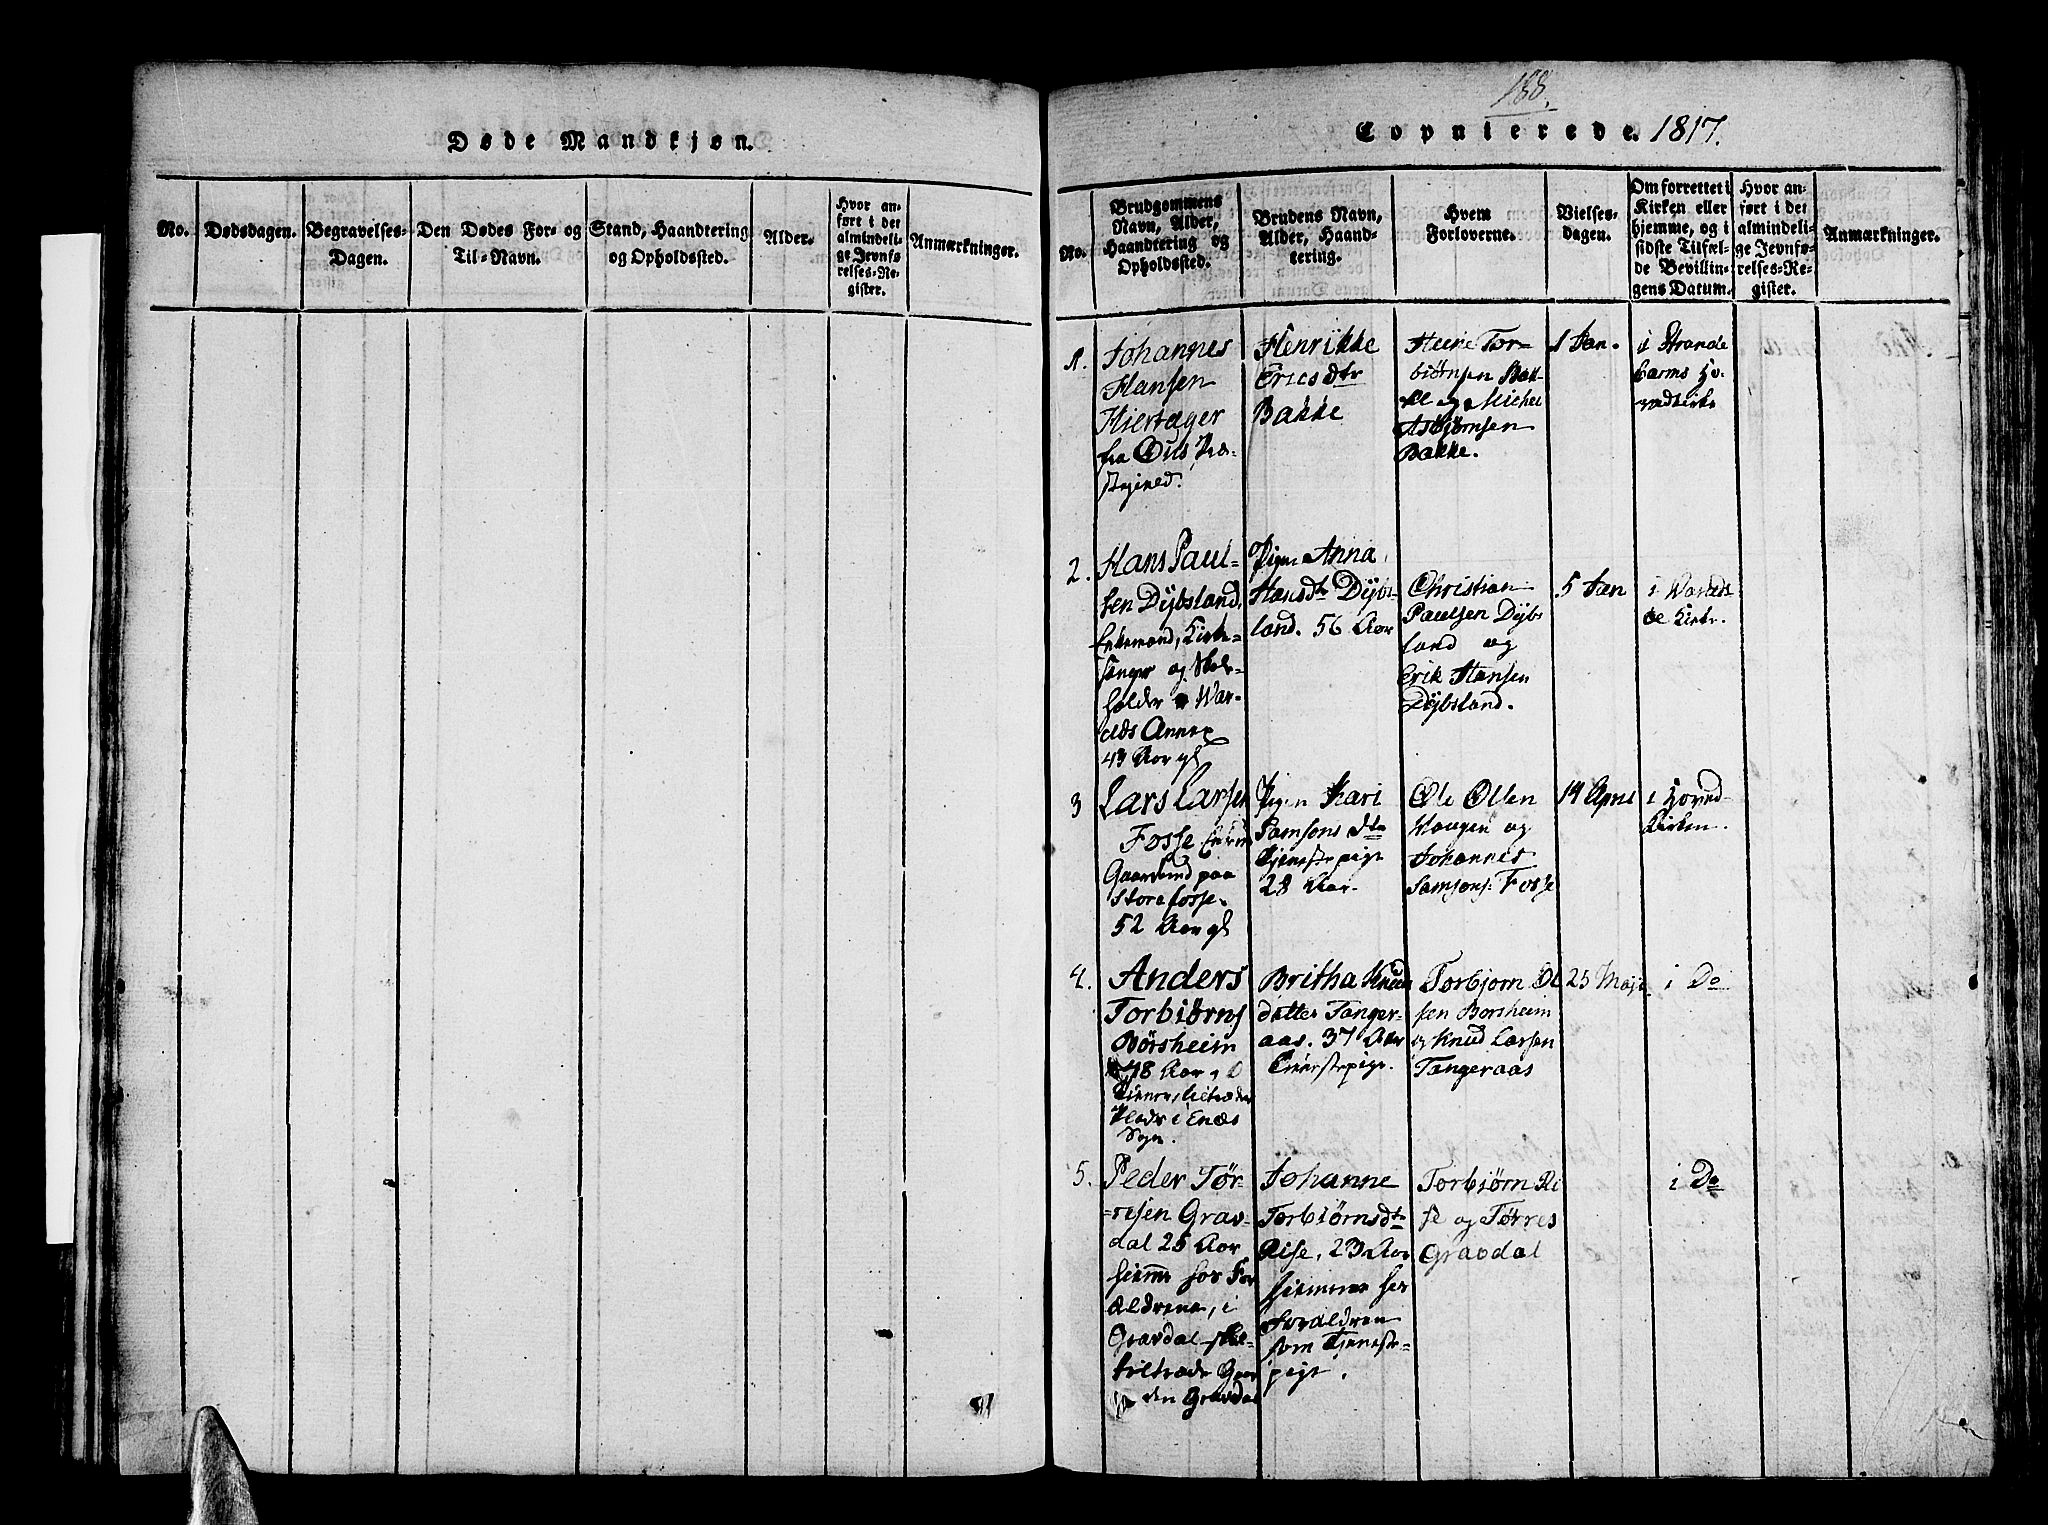 Døde Mandkjøn.
No.
Dødsdagen.
Begravelses-
Dagen.
Den Dødes For- og
Til-Navn.
Stand, Haandtering
og Opholdssted.
Alder.
Hvor an-
ført i det
almindeli-
ge Jevnfø-
relses-Re-
gister.
Anmærkninger.
188.
Copulerede. 1817.
No.
Brudgommens
Navn, Alder,
Haandtering og
Opholdssted.
Brudens Navn,
Alder, Haand-
tering.
Hvem
Forloverne.
Vielses-
dagen.
Om forrettet i
Kirken eller
hjemme, og i
sidste Tilfæl-
de Bevillin-
gens Datum.
Hvor an-
ført i det
almindeli-
ge Jevnfø-
relses-Re-
gister.
Anmærkninger.
1.
Johannes
Hansen
fra Præ-
stegield.
Henrikke
Ericsdtr
Bakke
Tor-
biørnsen Bak-
ke og Michel
Asbjørnsen
Bakke.
1 Jan.
i Strande
barms Ho-
vedkirke
2.
Hans Paul-
sen Dÿbsland,
Enkemand, Kirke-
sanger og Skole-
holder i War-
alds Annex
43 Aar gl
Pigen Anna
Hansdtr Dÿbs-
land. 56 Aar
Christian
Paulsen Dÿbs
land og
Erik Hansen
Dÿbsland.
5 Jan
i Warald-
sø Kirke.
3
Lars Larsen
Fosse
Gaardmd paa
Storefosse.
52 Aar gl
Pigen Kari
Samsons dtr
Tjenestepige
28 Aar.
Ole Olsen
Haugen og
Johannes
Samsons: Fosse
14 April
i Hoved-
kirken.
4.
Anders
Torbiørns
Børsheim
48 Aar
Plads i Enæs
Sogn.
Britha Knuds
datter Tanger-
aas. 37 Aar
Tienestepige.
Torbjørn Ol
sen Børsheim
og Knud Larsen
Tangeraas
25 Maji
i Do
5.
Peder Tør-
resen Grav-
dal 25 Aar
hiemme hos For
ældrene, i
Gravdal skal
tiltræde Gaar
den Gravdal
Johanne
Torbiørnsdtr
Rise, 23 Aar
hiemme hos
Forældren
som Tjeneste-
pige.
Torbjørn Ri
se og Tørres
Gravdal
i Do